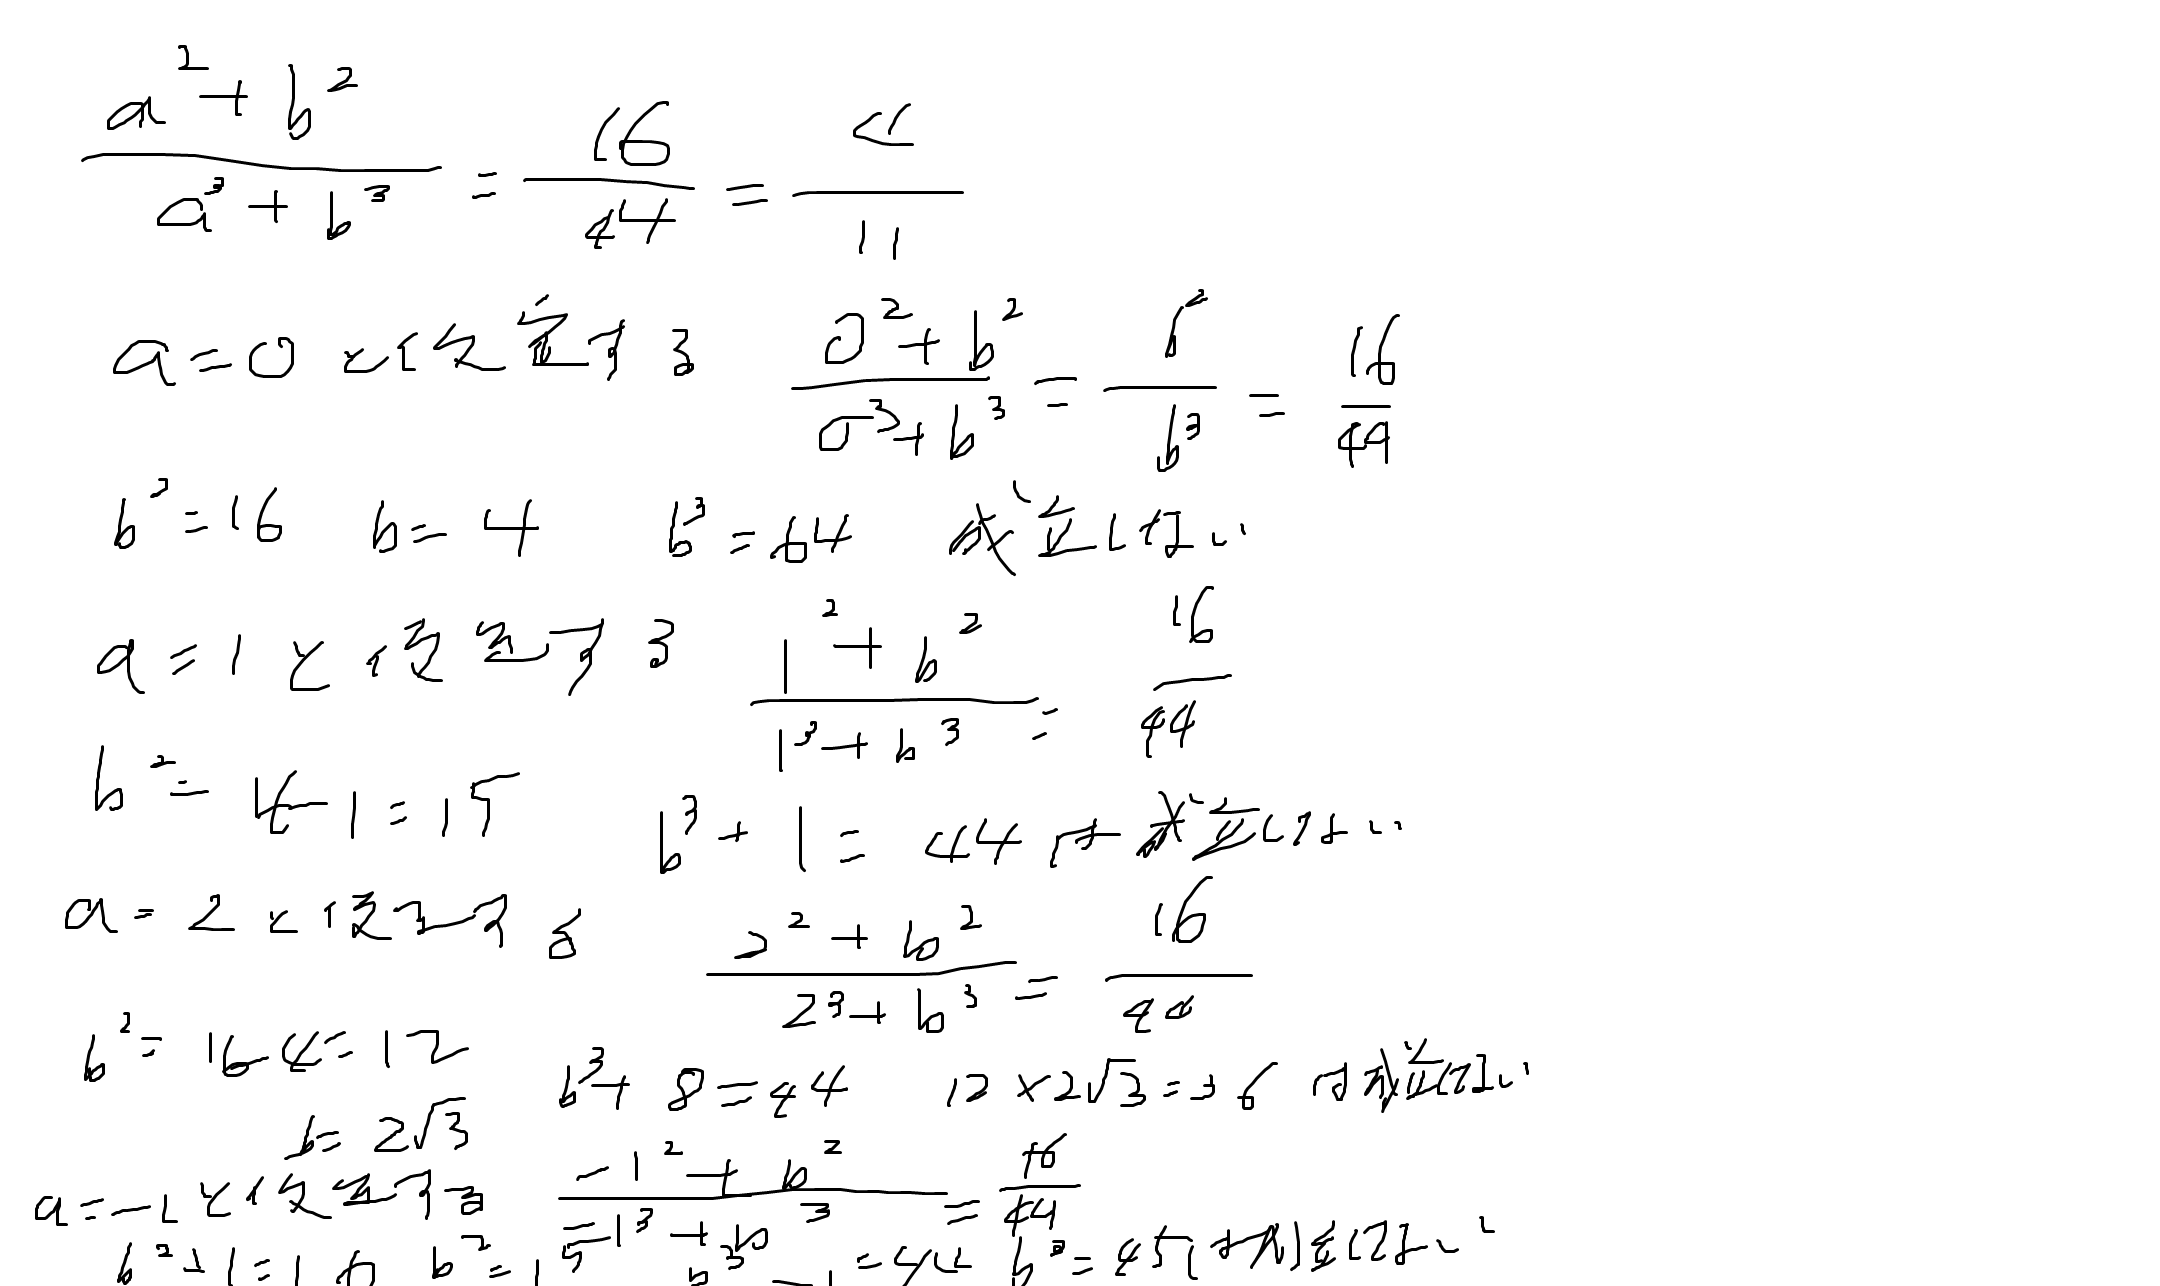 a²+b² / a³+b³ = 16/44 = 4/11
a=0と仮定する 0²+b² / 0³+b³ = b²/b³ = 16/44
b²=16 b=4 b³=64 成立しない
a=1と仮定する 1²+b² / 1³+b³ = 16/44
b²=16-1=15 b³+1=44は成立しない
a=2と仮定する 2²+b² / 2³+b³ = 16/44
b²=16-4=12 b³+8=44 12×2√3=36は成立しない
b=2√3
a=-1と仮定する -1²+b² / -1³+b³ = 16/44
b²+1=16 b²=15 b³-1=44 b³=45は成立しない